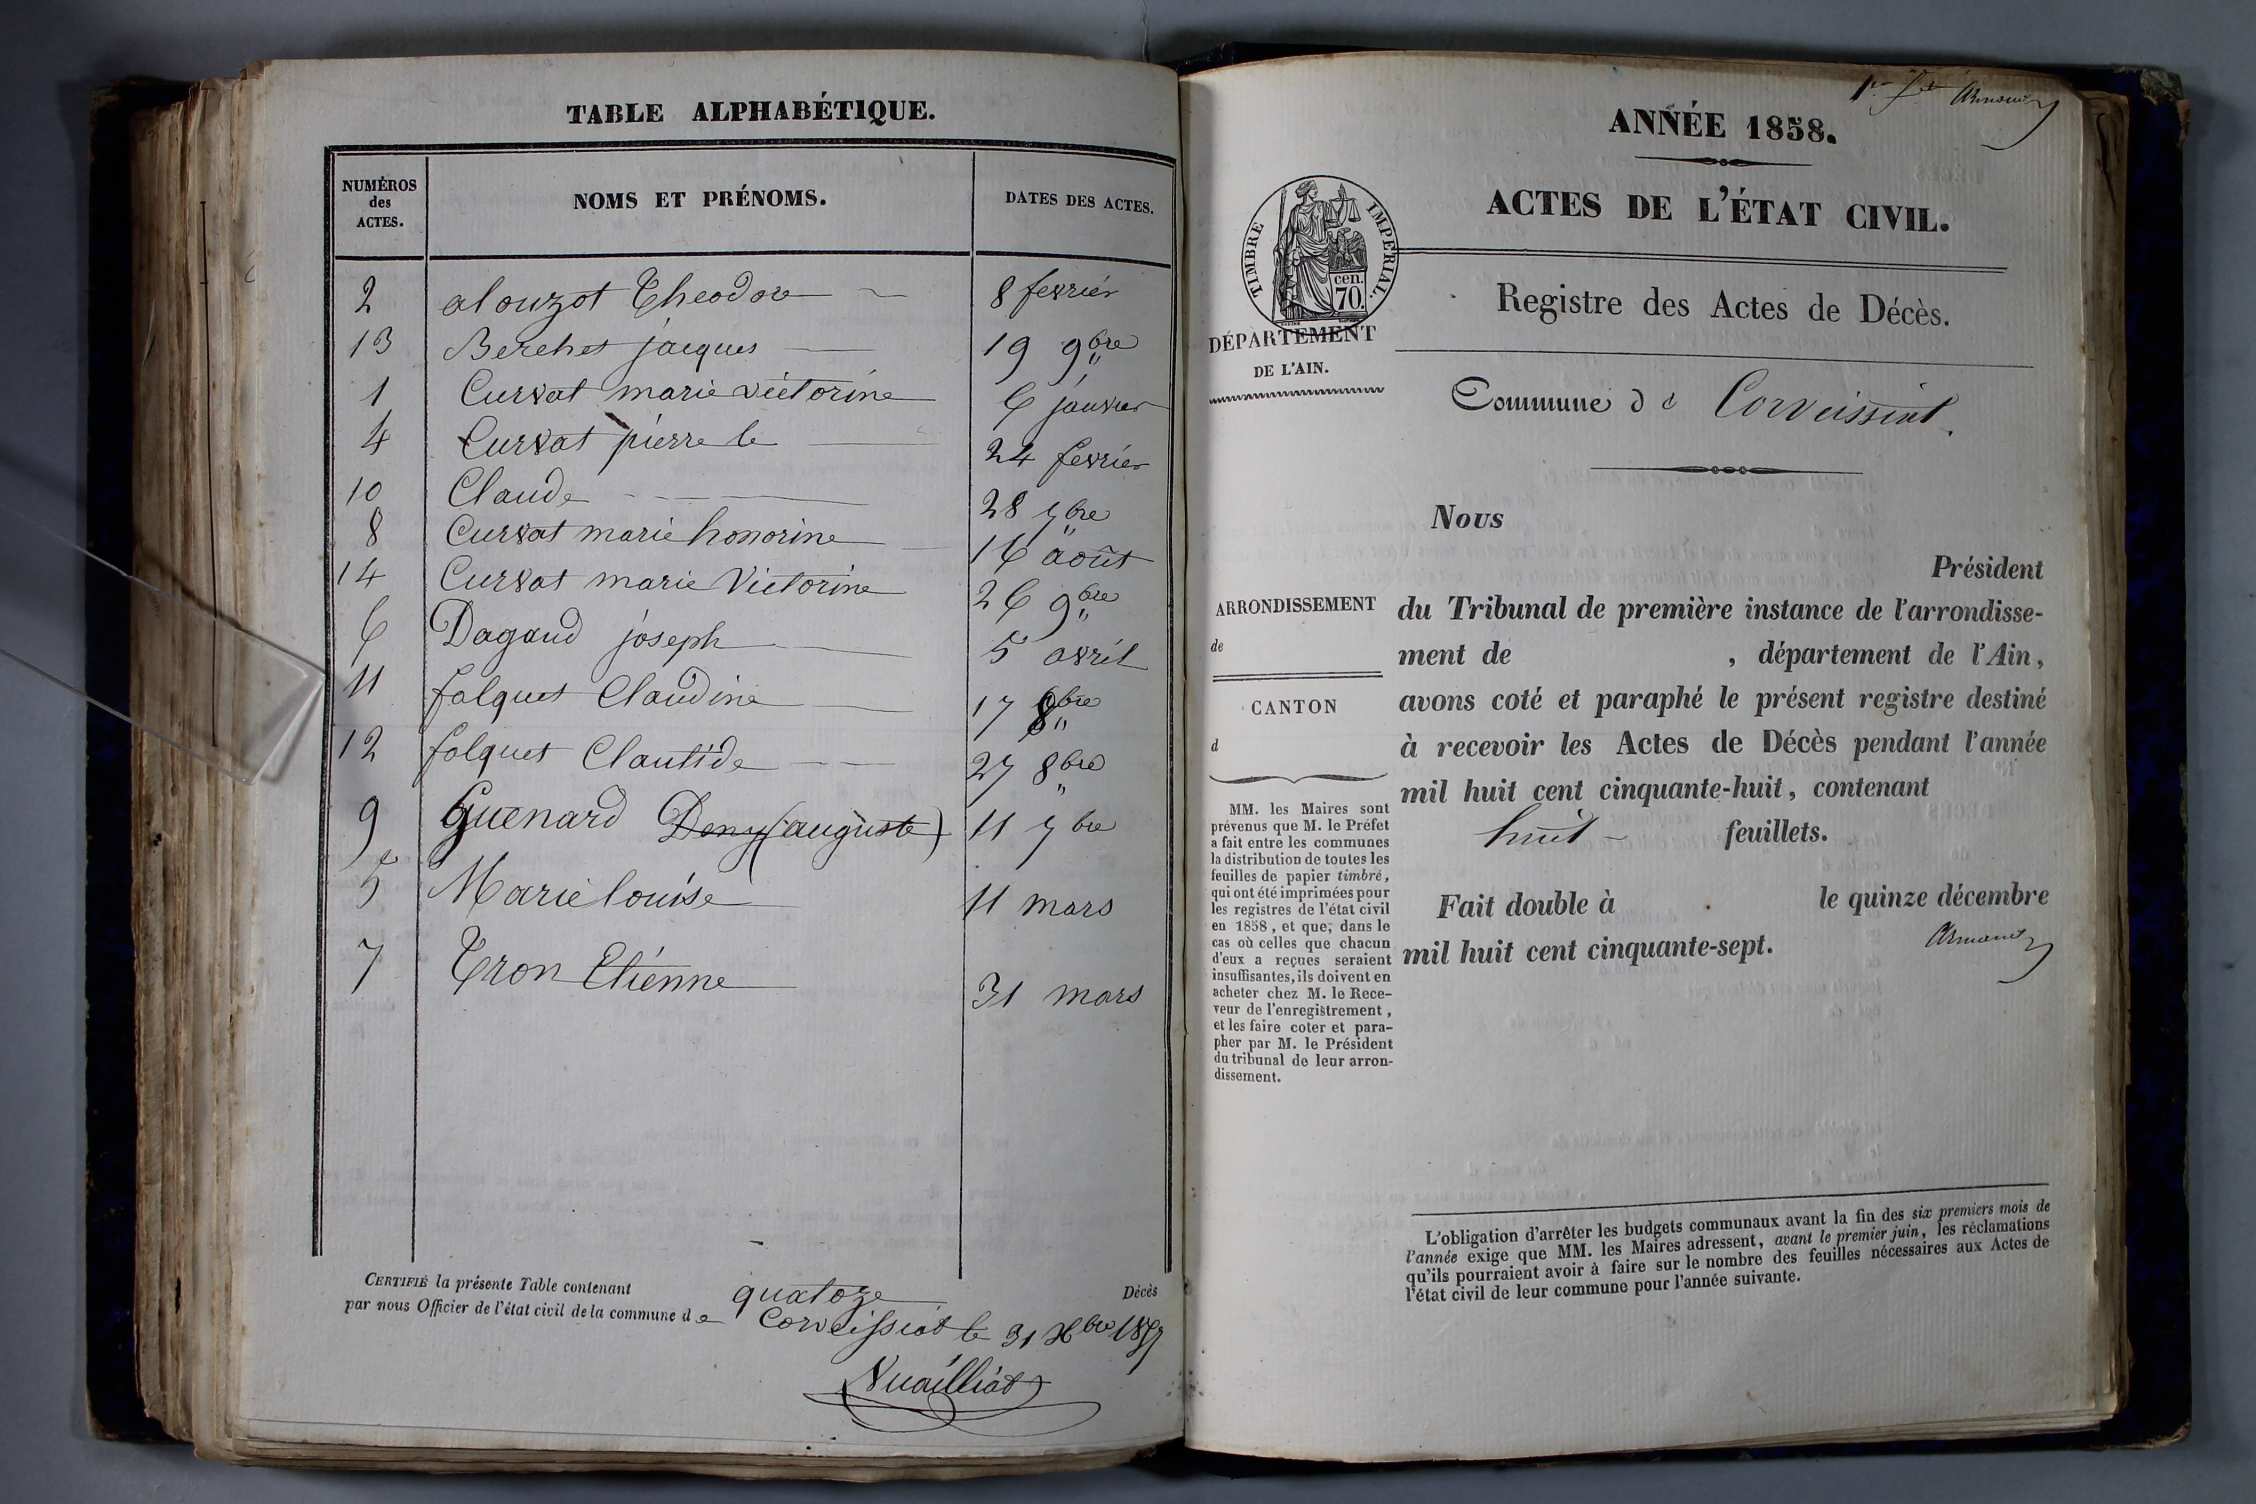 TABLE ALPHABÉTIQUE.
NUMÉROS des ACTES. NOMS ET PRÉNOMS. DATES DES ACTES.
2 alouzot Theodore 8 fevriér
13 Berchet jacques 19 9bre
1 Curvat marie victorine 6 janvier
4 Curvat pierre le 24 fevrier
10 Claude 28 7bre
8 Curvat marie honorine 16 août
14 Curvat marie Victorine 26 9bre
6 Dagaud joseph 5 avril
11 folquet Claudine 17 8bre
12 folquet Clautide 27 8bre
9 Guenard Deny (auguste) 11 7bre
5 Marie louise 11 mars
7 Tron Etienne 31 mars
CERTIFIÉ la présente Table contenant quatoze Décès
par nous Officier de l'état civil de la commune de Corveissiat le 31 Xbre 1857
Vuailliat
1er Armand
ANNÉE 1858.
ACTES DE L'ÉTAT CIVIL.
TIMBRE IMPERIAL.
cen.
70.
DÉPARTEMENT
DE L'AIN.
Registre des Actes de Décès.
Commune de Corveissiat.
Nous
Président
du Tribunal de première instance de l'arrondisse-
ment de , département de l'Ain,
avons coté et paraphé le présent registre destiné
à recevoir les Actes de Décès pendant l'année
mil huit cent cinquante-huit, contenant
huit feuillets.
Fait double à le quinze décembre
mil huit cent cinquante-sept.
Armand
ARRONDISSEMENT
de
CANTON
d
MM. les Maires sont
prévenus que M. le Préfet
a fait entre les communes
la distribution de toutes les
feuilles de papier timbré,
qui ont été imprimées pour
les registres de l'état civil
en 1858, et que, dans le
cas où celles que chacun
d'eux a reçues seraient
insuffisantes, ils doivent en
acheter chez M. le Rece-
veur de l'enregistrement,
et les faire coter et para-
pher par M. le Président
du tribunal de leur arron-
dissement.
L'obligation d'arrêter les budgets communaux avant la fin des six premiers mois de
l'année exige que MM. les Maires adressent, avant le premier juin, les réclamations
qu'ils pourraient avoir à faire sur le nombre des feuilles nécessaires aux Actes de
l'état civil de leur commune pour l'année suivante.